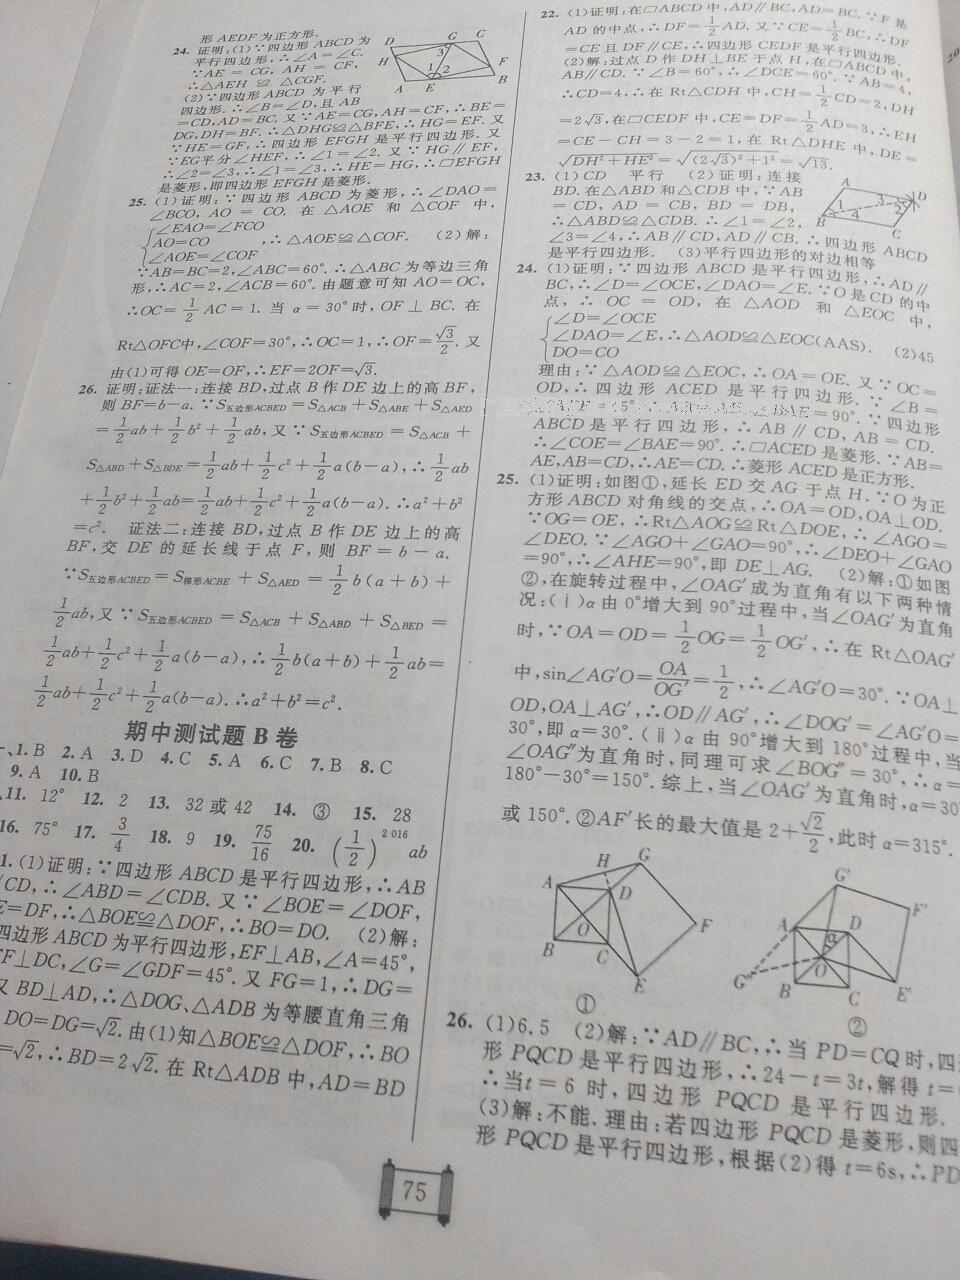 形 AEDF 为正方形.
24. 证明:(1)∵四边形 ABCD 为
平行四边形,∴∠A=∠C.
∵AE = CG, AH = CF,
∴△AEH ≌ △CGF.
(2)∵四边形 ABCD 为平行
四边形.∴∠B=∠D,且 AB
=CD,AD=BC.又∵AE=CG,AH=CF,∴BE=
DG,DH=BF.∴△DHG≌△BFE,∴HG=EF.又
∵HE=GF,∴四边形 EFGH 是平行四边形.又
∵EG平分∠HEF,∴∠1=∠2.又∵HG∥EF,
∴∠2=∠3,∴∠1=∠3,∴HE=HG,∴□EFGH
是菱形,即四边形 EFGH 是菱形.
D G C H 3 F 1 2 A E B
25. (1)证明:∵四边形 ABCD 为菱形,∴∠DAO=
∠BCO, AO = CO. 在 △AOE 和 △COF 中,
∠EAO=∠FCO
AO=CO ,∴△AOE≌△COF. (2)解:
∠AOE=∠COF
∵AB=BC=2,∠ABC=60°.∴△ABC 为等边三角
形,∴AC=2,∠ACB=60°.由题意可知 AO=OC,
∴OC=1/2 AC = 1. 当 α = 30°时, OF ⊥ BC. 在
Rt△OFC中,∠COF=30°,∴OC=1,∴OF=√3/2. 又
由(1)可得 OE=OF,∴EF=2OF=√3.
26. 证明:证法一:连接 BD,过点 B 作 DE 边上的高 BF,
则 BF=b-a.∵S五边形ACBED=S△ACB+S△ABE+S△AED
=1/2ab+1/2b²+1/2ab,又∵S五边形ACBED=S△ACB+
S△ABD+S△BDE=1/2ab+1/2c²+1/2a(b-a),∴1/2ab
+1/2b²+1/2ab=1/2ab+1/2c²+1/2a(b-a).∴a²+b²
=c². 证法二:连接 BD,过点 B 作 DE 边上的高
BF,交 DE 的延长线于点 F,则 BF=b-a.
∵S五边形ACBED=S梯形ACBE+S△AED=1/2b(a+b)+
1/2ab,又∵S五边形ACBED=S△ACB+S△ABD+S△BED=
1/2ab+1/2c²+1/2a(b-a),∴1/2b(a+b)+1/2ab=
1/2ab+1/2c²+1/2a(b-a).∴a²+b²=c².
期中测试题 B 卷
一、1. B 2. A 3. D 4. C 5. A 6. C 7. B 8. C
9. A 10. B
11. 12° 12. 2 13. 32 或 42 14. ③ 15. 28
16. 75° 17. 3/4 18. 9 19. 75/16 20. (1/2)^2016 ab
1. (1)证明:∵四边形 ABCD 是平行四边形,∴AB
∥CD,∴∠ABD=∠CDB.又∵∠BOE=∠DOF,
=DF,∴△BOE≌△DOF,∴BO=DO. (2)解:
四边形 ABCD 为平行四边形,EF⊥AB,∠A=45°,
⊥DC,∠G=∠GDF=45°.又 FG=1,∴DG=
又 BD⊥AD,∴△DOG、△ADB 为等腰直角三角
DO=DG=√2.由(1)知△BOE≌△DOF,∴BO
=√2,∴BD=2√2.在 Rt△ADB 中,AD=BD
22. (1)证明:在□ABCD 中,AD∥BC,AD=BC.∵F 是
AD 的中点,∴DF=1/2AD.又∵CE=1/2BC,∴DF
=CE 且 DF∥CE,∴四边形 CEDF 是平行四边形.
(2)解:过点 D 作 DH⊥BE 于点 H,在□ABCD 中,
AB∥CD.∵∠B=60°,∴∠DCE=60°.∵AB=4,
∴CD=4,∴在 Rt△CDH 中,CH=1/2CD=2,DH
=2√3,在□CEDF 中,CE=DF=1/2AD=3,∴EH
=CE-CH=3-2=1,在 Rt△DHE 中,DE=
√(DH²+HE²)=√((2√3)²+1²)=√13.
23. (1)CD 平行 (2)证明:连接
BD.在△ABD 和△CDB 中,∵AB
=CD, AD=CB, BD=DB,
∴△ABD≌△CDB.∴∠1=∠2,
∠3=∠4,∴AB∥CD,AD∥CB.∴四边形 ABCD
是平行四边形. (3)平行四边形的对边相等
A D 3 2 1 4 B C
24. (1)证明:∵四边形 ABCD 是平行四边形,∴AD∥
BC,∴∠D=∠OCE,∠DAO=∠E.∵O 是 CD 的中
点,∴OC=OD,在 △AOD 和 △EOC 中,
∠D=∠OCE
∠DAO=∠E,∴△AOD≌△EOC(AAS). (2)45
DO=CO
理由:∵△AOD≌△EOC,∴OA=OE.又∵OC=
OD,∴四边形 ACED 是平行四边形.∵∠B=
=90°.∵四边形
ABCD 是平行四边形,∴AB∥CD,AB=CD.
∴∠COE=∠BAE=90°.∴□ACED 是菱形.∵AB=
AE,AB=CD,∴AE=CD.∴菱形 ACED 是正方形.
25. (1)证明:如图①,延长 ED 交 AG 于点 H.∵O 为正
方形 ABCD 对角线的交点,∴OA=OD,OA⊥OD.
∵OG=OE,∴Rt△AOG≌Rt△DOE,∴∠AGO=
∠DEO.∵∠AGO+∠GAO=90°,∴∠DEO+∠GAO
=90°,∴∠AHE=90°,即 DE⊥AG. (2)解:①如图
②,在旋转过程中,∠OAG′成为直角有以下两种情
况:(ⅰ)α 由 0°增大到 90°过程中,当∠OAG′为直角
时,∵OA=OD=1/2OG=1/2OG′,∴在 Rt△OAG′
中,sin∠AG′O=OA/OG′=1/2,∴∠AG′O=30°.∵OA⊥
OD,OA⊥AG′,∴OD∥AG′,∴∠DOG′=∠AG′O=
30°,即 α=30°.(ⅱ)α 由 90°增大到 180°过程中,当
∠OAG″为直角时,同理可求∠BOG″=30°,∴α=
180°-30°=150°.综上,当∠OAG′为直角时,α=30°
或 150°.②AF′长的最大值是 2+√2/2,此时 α=315°.
H G A D O F B C E
①
G′ F′ A D α O G″ B C E′
②
26. (1)6.5 (2)解:∵AD∥BC,∴当 PD=CQ 时,四
形 PQCD 是平行四边形,∴24-t=3t,解得 t=
∴当 t=6 时,四边形 PQCD 是平行四边形.
(3)解:不能.理由:若四边形 PQCD 是菱形,则四
形 PQCD 是平行四边形,根据(2)得 t=6s,∴PD
75